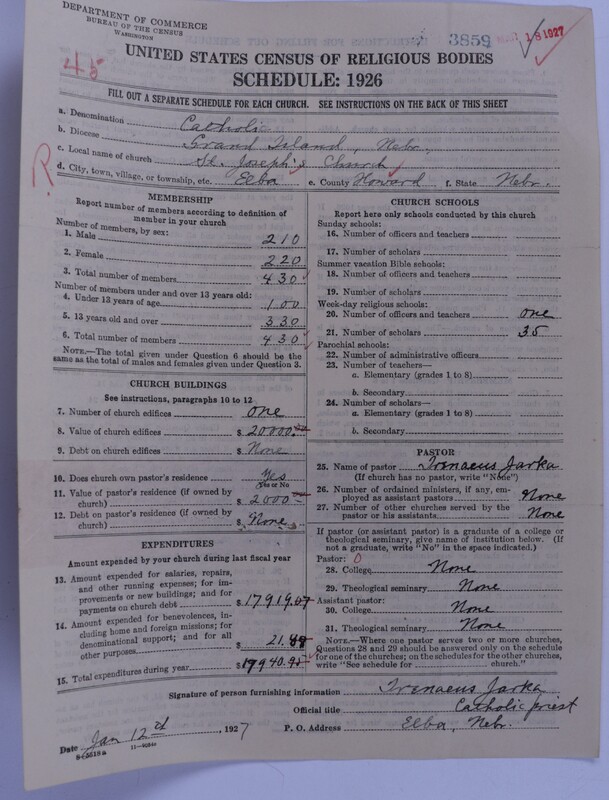 DEPARTMENT OF COMMERCE
BUREAU OF THE CENSUS
WASHINGTON
3859
18 1927
45
UNITED STATES CENSUS OF RELIGIOUS BODIES
SCHEDULE: 1926
FILL OUT A SEPARATE SCHEDULE FOR EACH CHURCH. SEE INSTRUCTIONS ON THE BACK OF THIS SHEET
a. Denomination Catholic
b. Diocese Grand Island, Nebr.
c. Local name of church St. Joseph's Church
R
d. City, town, village, or township, etc. Elba e. County Howard f. State Nebr.
MEMBERSHIP
Report number of members according to definition of
member in your church
Number of members, by sex:
1. Male 210
2. Female 220
3. Total number of members 430
Number of members under and over 13 years old:
4. Under 13 years of age 100
5. 13 years old and over 330
6. Total number of members 430
NOTE.—The total given under Question 6 should be
same as the total of males and females given under Question 3.
CHURCH BUILDINGS
See instructions, paragraphs 10 to 12
7. Number of church edifices one
8. Value of church edifices $ 20000.
9. Debt on church edifices $ None
10. Does church own pastor's residence? Yes
Yes or No
11. Value of pastor's residence (if owned by
church) $ 2000
12. Debt on pastor's residence (if owned by
church) $ None
EXPENDITURES
Amount expended by your church during last fiscal year
13. Amount expended for salaries, repairs,
and other running expenses; for im-
provements or new buildings; and for
payments on church debt $ 17919.07
14. Amount expended for benevolences, in-
cluding home and foreign missions; for
denominational support; and for all
other purposes $ 21.88
15. Total expenditures during year $ 17940.95
CHURCH SCHOOLS
Report here only schools conducted by this church
Sunday schools:
16. Number of officers and teachers
17. Number of scholars
Summer vacation Bible schools:
18. Number of officers and teachers
19. Number of scholars
Week-day religious schools:
20. Number of officers and teachers one
21. Number of scholars 35
Parochial schools:
22. Number of administrative officers
23. Number of teachers—
a. Elementary (grades 1 to 8)
b. Secondary
24. Number of scholars—
a. Elementary (grades 1 to 8)
b. Secondary
PASTOR
25. Name of pastor Irenaeus Jarka
(If church has no pastor, write "None")
26. Number of ordained ministers, if any, em-
ployed as assistant pastors None
27. Number of other churches served by the
pastor or his assistants None
If pastor (or assistant pastor) is a graduate of a college or
theological seminary, give name of institution below. (If
not a graduate, write "No" in the space indicated.)
Pastor: 0
28. College None
29. Theological seminary None
Assistant pastor:
30. College None
31. Theological seminary None
NOTE.—Where one pastor serves two or more churches,
Questions 28 and 29 should be answered only on the schedule
for one of the churches; on the schedules for the other churches,
write "See schedule for church."
Signature of person furnishing information Irenaeus Jarka
Official title Catholic priest
Date Jan 12th, 1927 P. O. Address Elba, Nebr.